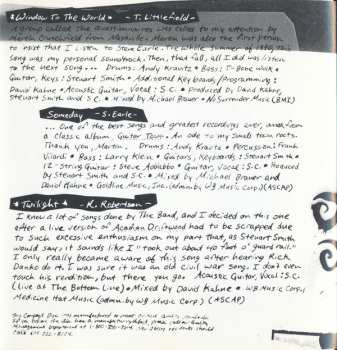 *Window To The World* - T. Littlefield -
A group called The Questionnaires was called to my attention by
Martin from Nashville. Martin was also the first person
to insist that I listen to Steve Earle. The whole summer of this
song was my personal soundtrack. Then, that fall, all I did was listen
to the next song... Drums: Andy Kravitz * Bass: T-Bone Wolk *
Guitar, Keys: Stewart Smith * Additional Keyboards/Programming:
David Kahne * Acoustic Guitar, Vocal: S.C. * Produced by David Kahne,
Stewart Smith and S.C. * Mixed by Michael Brauer * No Surrender Music (BMI)
Someday - S. Earle -
... One of the best songs and greatest recordings ever, and from
a classic album, Guitar Town. An ode to my small town roots.
Thank you, Martin. Drums: Andy Kravitz * Percussion: Frank
Vilardi * Bass: Larry Klein * Guitars, Keyboards: Stewart Smith *
12-String Guitar: Steve Addabbo * Guitar, Vocal: S.C. * Produced
by Stewart Smith and S.C. * Mixed by Michael Brauer and
David Kahne * Goldline Music, Inc. (admin. by W.B. Music Corp.) (ASCAP)
*Twilight* - R. Robertson -
I know a lot of songs done by The Band, and I decided on this one
after a live version of Acadian Driftwood had to be scrapped due
to such excessive enthusiasm on my part that, as Stewart Smith
would say, it sounds like I "took out about 40 foot o' guard rail."
I only really became aware of this song after hearing Rick
Danko do it. I was sure it was an old Civil War song. I don't even
touch his rendition, but there you go. Acoustic Guitar, Vocal: S.C.
(live at The Bottom Line) * Mixed by David Kahne * W.B. Music Corp./
Medicine Hat Music (admin. by W.B. Music Corp.) (ASCAP)
This Compact Disc was manufactured to